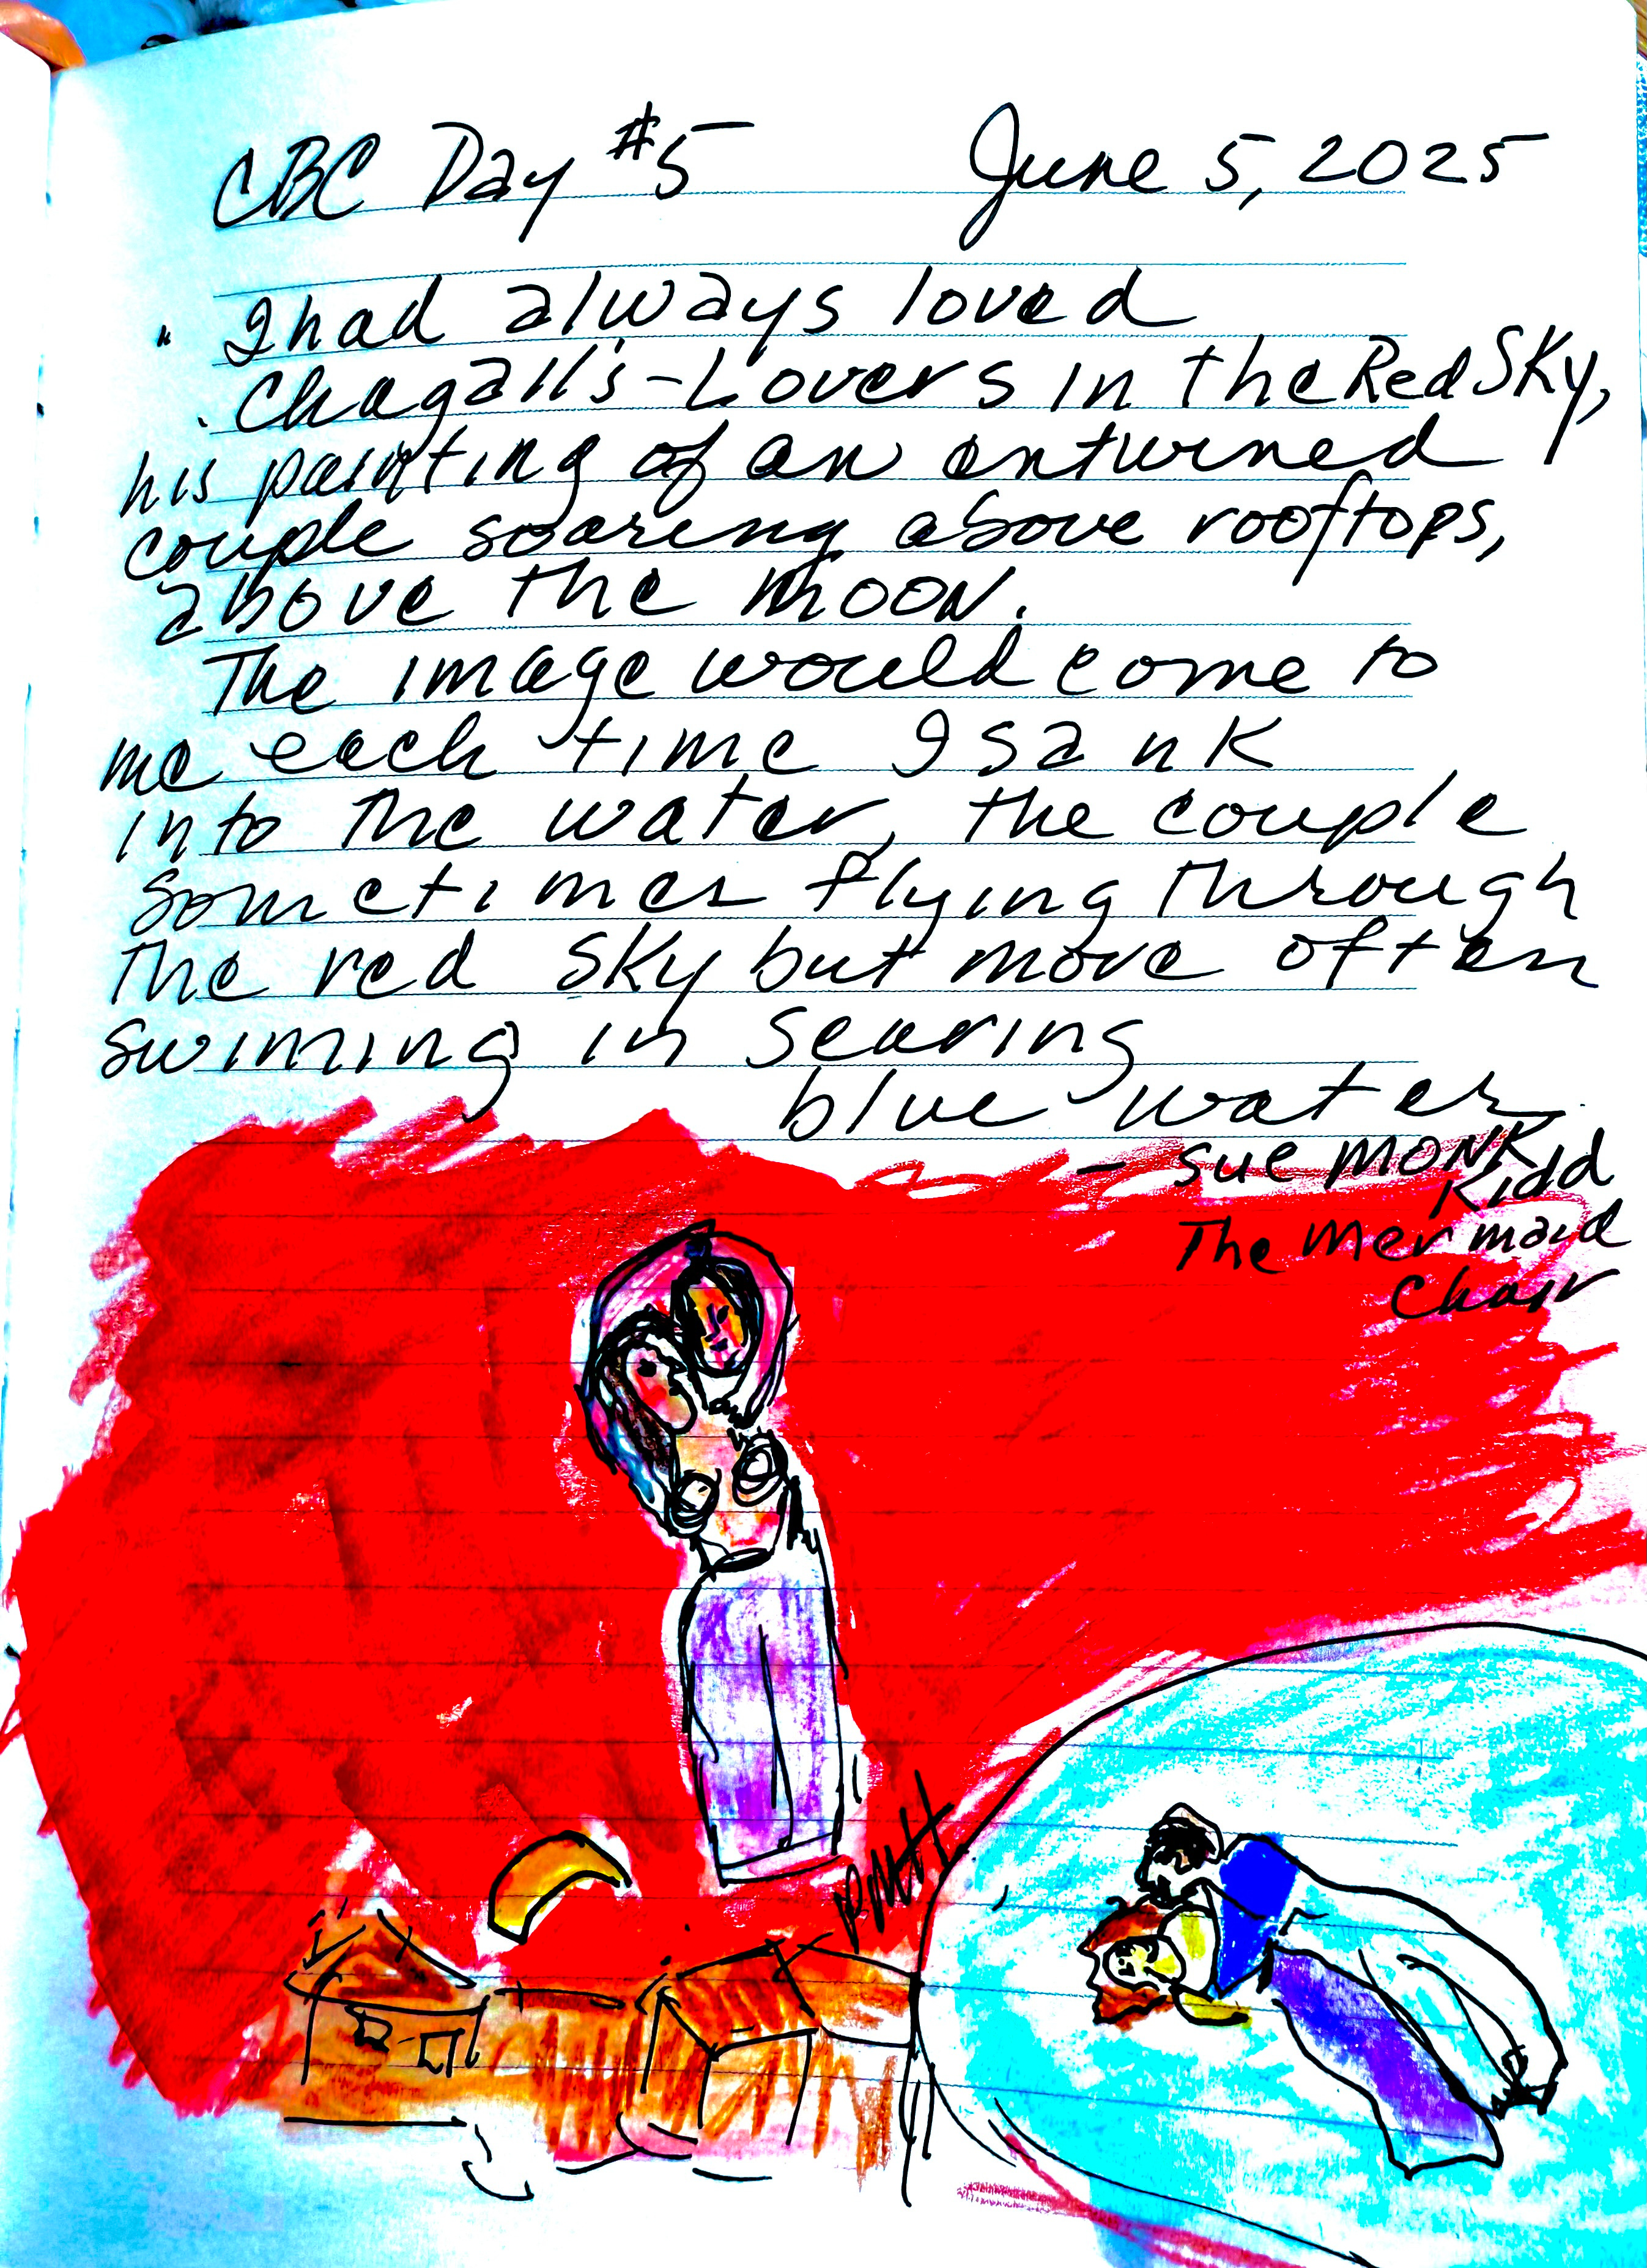 CBC Day #5 June 5, 2025
" I had always loved
Chagall's - Lovers in the Red Sky,
his painting of an entwined
couple soaring above rooftops,
above the moon.
The image would come to
me each time I sank
into the water, the couple
sometimes flying through
the red sky but more often
swiming in searing
blue water.
- Sue Monk
Kidd
The Mermaid
Chair